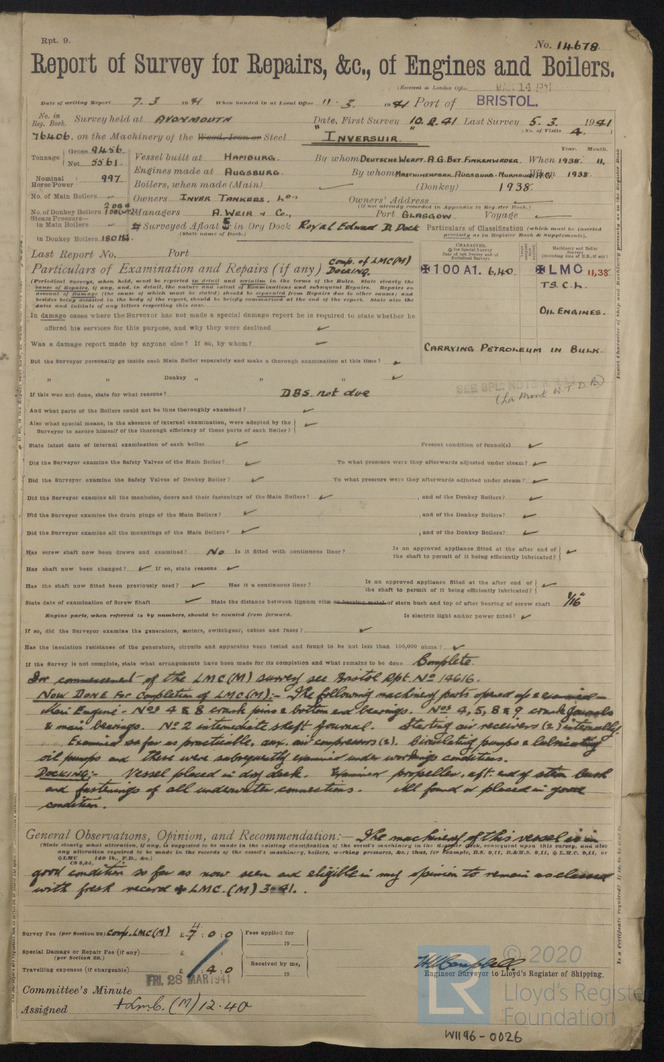 Rpt. 9.
No. 14678
Report of Survey for Repairs, &c., of Engines and Boilers.
(Received at London Office MAR 14 1941
Date of writing Report 7. 3 1941 When handed in at Local Office 11. 3. 1941 Port of BRISTOL.
No. in Reg. Book. Survey held at AVONMOUTH Date, First Survey 10. 2. 41 Last Survey 5. 3. 1941
(No. of Visits 4.)
76406. on the Machinery of the Wood, Iron or Steel "INVERSUIR."
Tonnage Gross 9456 Net 5561. Vessel built at HAMBURG. By whom DEUTSCHE WERFT. A.G. BET. FINKENWERDER. When 1938. 11,
Nominal Horse Power 997 Engines made at AUGSBURG. By whom MASCHINENFABRIK AUGSBURG-NURNBURG A.G. When 1938
No. of Main Boilers Boilers, when made (Main) (Donkey) 1938.
Owners INVER TANKERS, LTD. Owners' Address
(If not already recorded in Appendix to Register Book.)
No. of Donkey Boilers Managers A. WEIR & CO., Port GLASGOW. Voyage
Steam Pressure— in Main Boilers
in Donkey Boilers 180 lbs.
If Surveyed Afloat or in Dry Dock Royal Edward D. Dock
(State name of Dock.)
Particulars of Classification (which must be inserted precisely as in Register Book & Supplements).
Last Report No. Port
Particulars of Examination and Repairs (if any) Comp. of LMC(M) DOCKING.
✠ 100 A1. 6,40.
✠ LMC 11,38
T.S. C.L.
OIL ENGINES.
CARRYING PETROLEUM IN BULK.
In damage cases where the Surveyor has not made a special damage report he is required to state whether he
offered his services for this purpose, and why they were declined
Was a damage report made by anyone else? If so, by whom?
Did the Surveyor personally go inside each Main Boiler separately and make a thorough examination at this time?
" " Donkey " " " "
If this was not done, state for what reasons? DBS. not due
And what parts of the Boilers could not be thus thoroughly examined?
Also what special means, in the absence of internal examination, were adopted by the
Surveyor to assure himself of the thorough efficiency of those parts of each Boiler?
State latest date of internal examination of each boiler Present condition of funnel(s)
Did the Surveyor examine the Safety Valves of the Main Boiler? To what pressure were they afterwards adjusted under steam?
Did the Surveyor examine the Safety Valves of Donkey Boiler? To what pressure were they afterwards adjusted under steam?
Did the Surveyor examine all the manholes, doors and their fastenings of the Main Boilers? , and of the Donkey Boilers?
Did the Surveyor examine the drain plugs of the Main Boilers? , and of the Donkey Boilers?
Did the Surveyor examine all the mountings of the Main Boilers? , and of the Donkey Boilers?
Has screw shaft now been drawn and examined? No Is it fitted with continuous liner? Is an approved appliance fitted at the after end of the shaft to permit of it being efficiently lubricated?
Has shaft now been changed? If so, state reasons
Has the shaft now fitted been previously used? Has it a continuous liner? Is an approved appliance fitted at the after end of the shaft to permit of it being efficiently lubricated?
State date of examination of Screw Shaft State the distance between lignum vitæ or bearing metal of stern bush and top of after bearing of screw shaft 1/16"
Engine parts, when referred to by numbers, should be counted from forward. Is electric light and/or power fitted?
If so, did the Surveyor examine the generators, motors, switchgear, cables and fuses?
Has the insulation resistance of the generators, circuits and apparatus been tested and found to be not less than 100,000 ohms?
If the Survey is not complete, state what arrangements have been made for its completion and what remains to be done Complete.
For commencement of the LMC(M) survey see Bristol Rpt. No 14616.
Now Done For Completion of LMC(M):- The following machinery parts opened up & examined—
Main Engine - Nos 4 & 8 crank pins & bottom end bearings. Nos 4, 5, 8 & 9 crank journals
& main bearings. No 2 intermediate shaft journal. Starting air receivers (2) internally.
Examined so far as practicable, aux. air compressors (2). Circulating pumps & lubricating
oil pumps and these were subsequently examined under working conditions.
Docking:- Vessel placed in dry dock. Examined propeller, aft. end of stern bush
and fastenings of all underwater connections. All found or placed in good
condition.
General Observations, Opinion, and Recommendation:— The machinery of this vessel is in
good condition so far as now seen and eligible in my opinion to remain as classed
with fresh record ✠ LMC. (M) 3-41.
Survey Fee (per Section 29) Comp. LMC(M) £ 7 : 0 : 0 Fees applied for
Special Damage or Repair Fee (if any) £
(per Section 29.)
Travelling expenses (if chargeable) £ 4 : 0 Received by me,
Engineer Surveyor to Lloyd's Register of Shipping.
FRI. 28 MAR 1941
Committee's Minute
Assigned + LMC. (M) 12.40
© 2020
Lloyd's Register
Foundation
W1196-0026